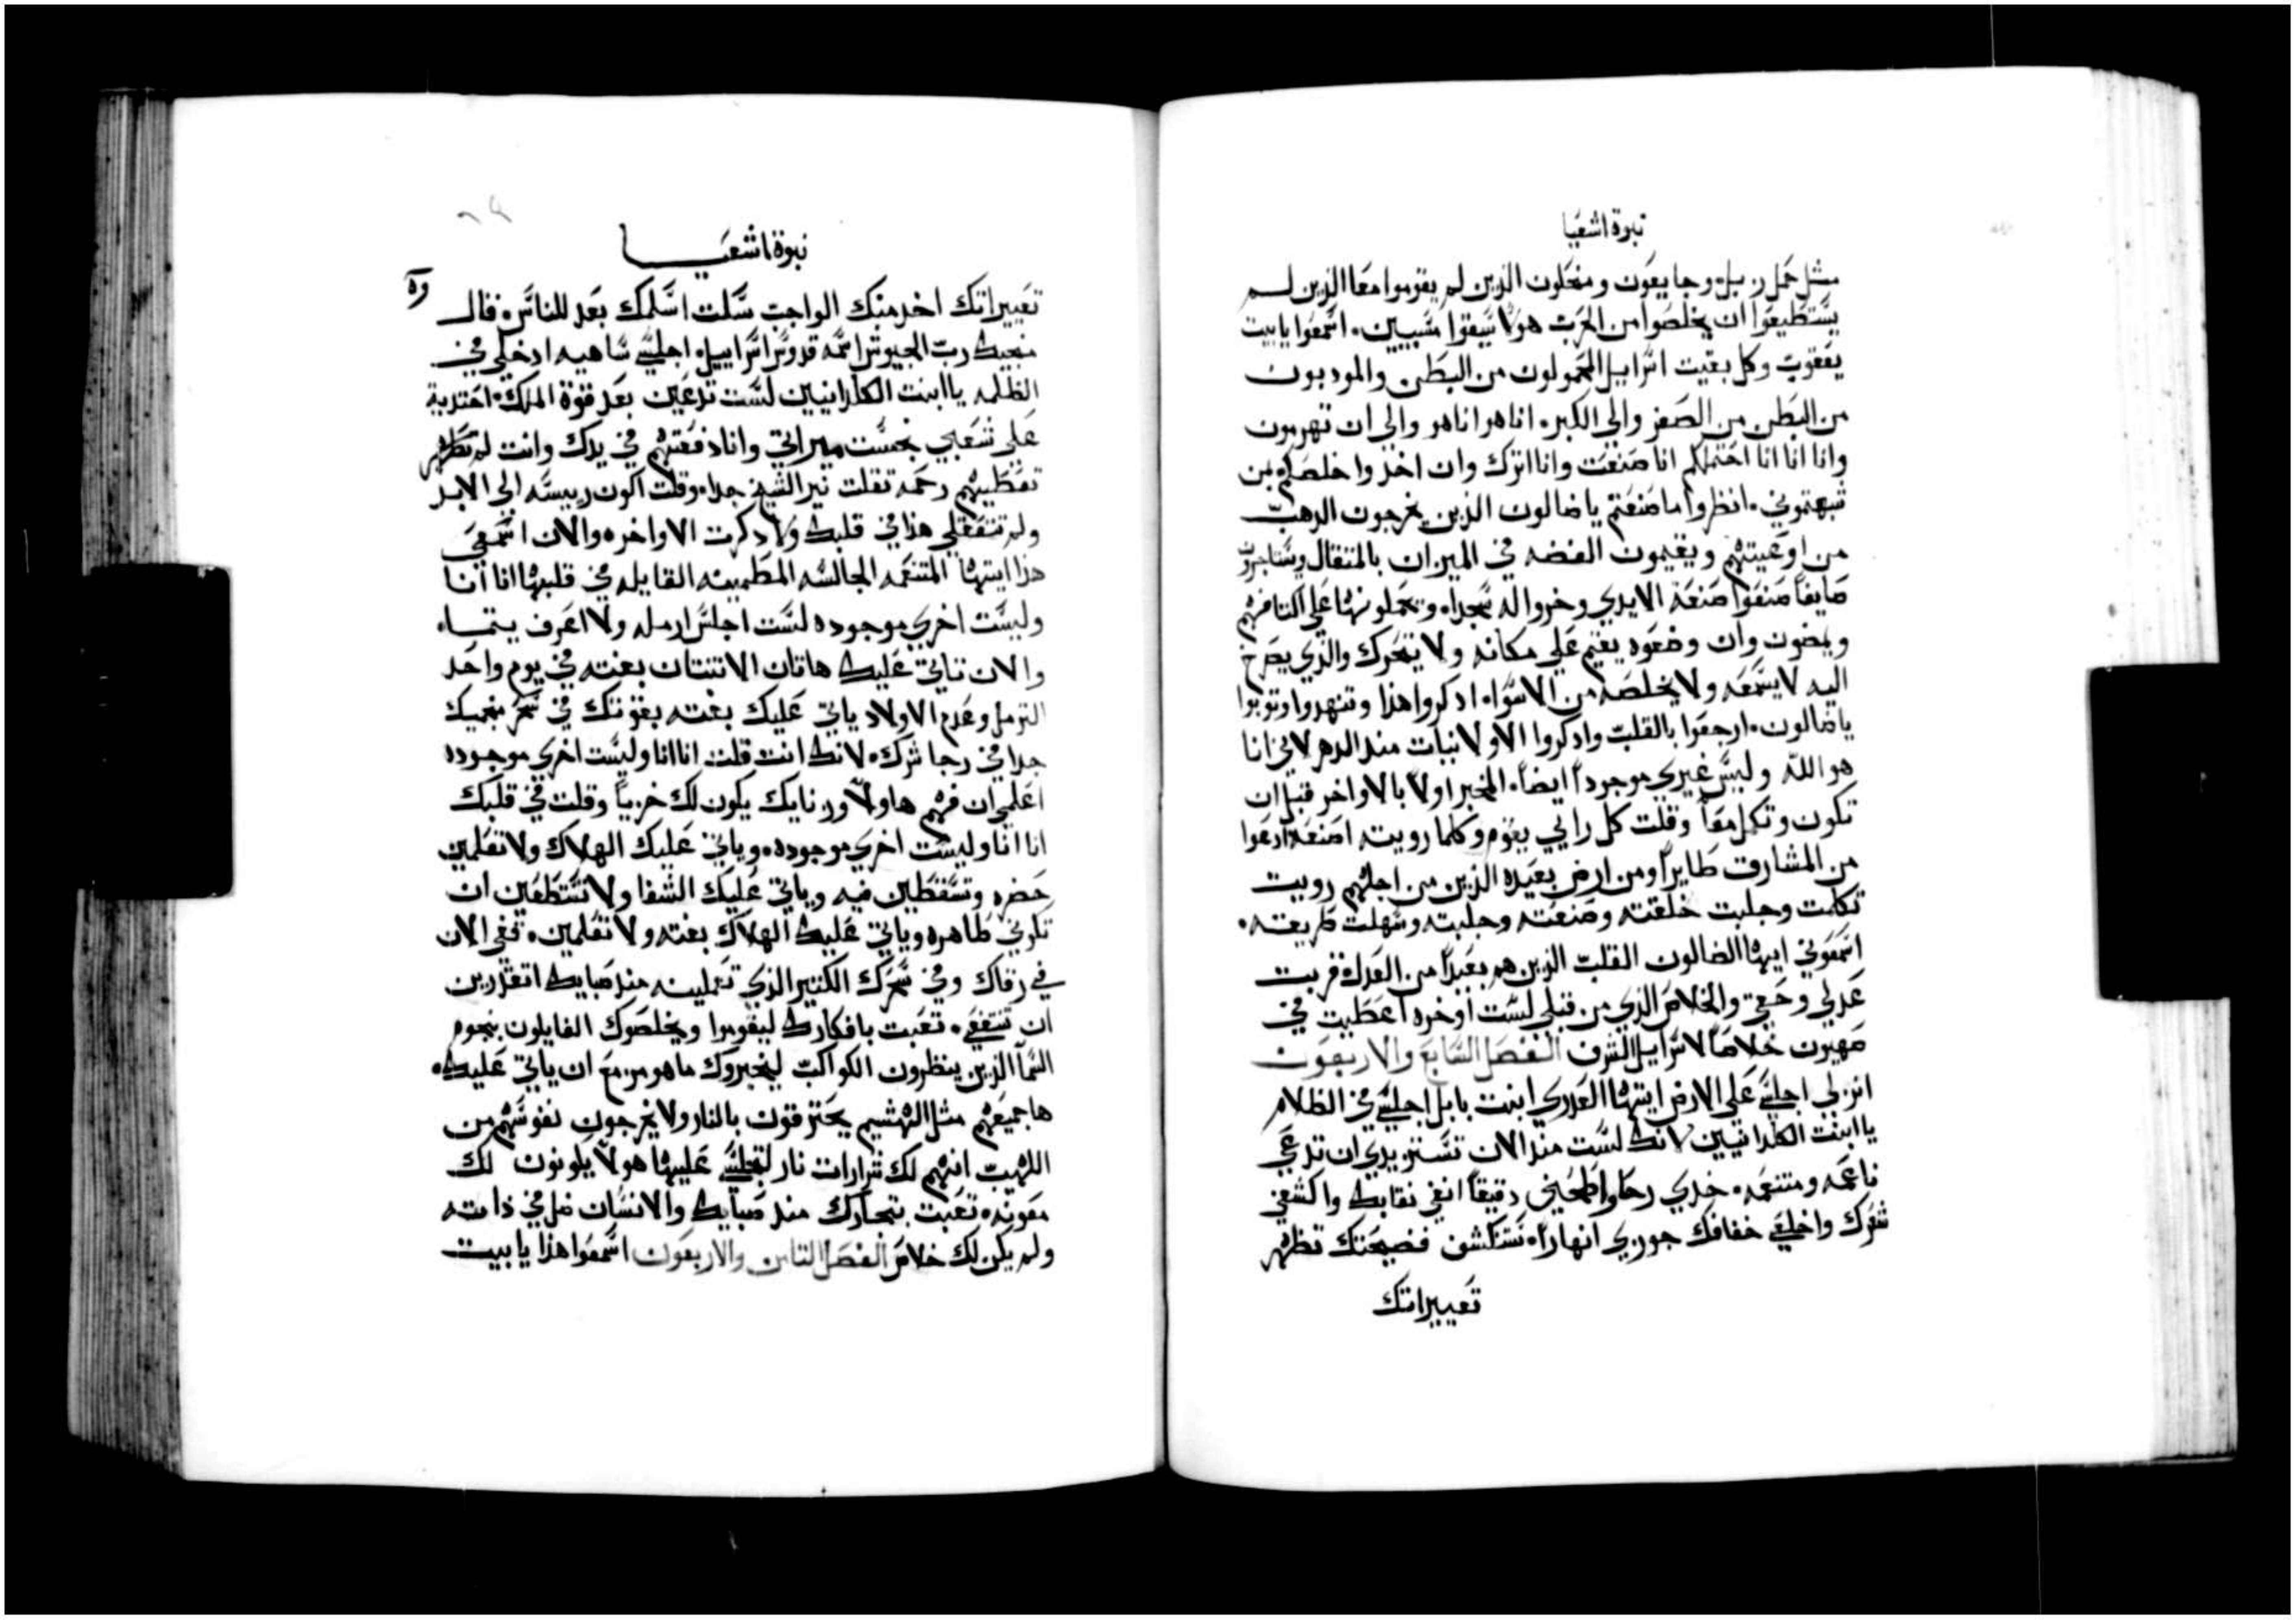 نبوة اشعيا
مثل حمل ربل، وجايعون ومنحلون الذين لم يقوموا معا الذين لم
يستطيعوا ان يخلصوا من الحرب هولا سيقوا مسبيين. اسمعوا يا بيت
يعقوب وكل بقيت اسراييل المحمولون من البطن والمودبون
من البطن من الصغر والى الكبر. انا هو انا هو والي ان تهرمون
وانا انا انا احتملكم انا صنعت وانا اترك وان اخذ واخلصكم بمن
شبهتموني. انظروا ما صنعتم يا ضالون الذين يخرجون الدهب
من اوعيتهم ويقيمون الفضه في الميزان بالمتقال ويستاجرون
صايغا صنعوا صنعة الايدي وخروا له سجدا، ويحملونها على اكتافهم
ويمضون وان وضعوه يقيم على مكانه ولا يتحرك والذي يصرخ
اليه لا يسمعه ولا يخلصه من الاسوا، ادكروا هذا وتنهدوا وتوبوا
يا ضالون. ارجعوا بالقلب وادكروا الاولانيات مند الدهر لاني انا
هو الله وليس غيري موجودا ايضا. المخبر اولا بالاواخر قبل ان
تكون وتكمل معا وقلت كل رايي يقوم وكلما رويت اصنعه ادعوا
من المشارق طايرا ومن ارض بعيده الذين من اجلهم رويت
تكلمت وجلبت خلقته وصنعته وجلبته وسهلت طريقته.
اسمعوني ايها الضالون القلب الذين هم بعيدا من العدل، قربت
عدلي وحقي والخلاص الذي من قبلي لست اوخره اعطيت في
صهيون خلاصا لاسراييل الشرف الفصل السابع والاربعون
انزلي اجلسي على الارض ايتها العدري ابنت بابل اجلسي في الظلام
يا ابنت الكلدانيين لانك لست مند الان تستزيدي ان تدعي
ناعمه ومتنعمه. خدي رحا واطحني دقيقا انفي نقابك واكشفي
شعرك واخلعي خفافك جوزي انهارا، تنكشف فضيحتك تظهر
تعييراتك
نبوة اشعيا
تعييراتك اخد منك الواجب سلت اسلمك بعد للناس. فقال
منجيك رب الجيوش اسمه قدوس اسراييل. اجلسي ساهيه ادخلي في
الظلمه يا ابنت الكلدانيين لست تدعين بعد قوة الملك. احتديت
على شعبي نجست ميراتي وانا دفعتهم في يدك وانت لم تظهر
تعطيهم رحمه تقلت نير الشيخ جدا، وقلت اكون رييسه الى الابد
ولم تتعقلي هذا في قلبك ولا دكرت الاواخر، والان اسمعي
هذا ايتها المتنعمه الجالسه المطمينه القايله في قلبها انا انا
وليست اخري موجوده لست اجلس ارمله ولا اعرف يتما.
والان تاتي عليك هاتان الاتنتان بغته في يوم واحد
الترمل وعدم الاولاد ياتي عليك بغته بقوتك في سحر منجميك
جدا في رجا شرك. لانك انت قلت انا انا وليست اخري موجوده
اعلمي ان فهم هاولا ورنايك يكون لك خزيا وقلت في قلبك
انا انا وليست اخري موجوده، وياتي عليك الهلاك ولا تعلمين
حضره وتسقطين فيه وياتي عليك الشقا ولا تستطعين ان
تكوني طاهره وياتي عليك الهلاك بغته ولا تعلمين. قفي الان
في رقاك وفي سحرك الكتير الذي تعملينه مند صبايك اتقدرين
ان تنتفعي. تعبت بافكارك ليقوموا ويخلصوك القايلون بنجوم
السما الذين ينظرون الكواكب ليخبروك ما هو مزمع ان ياتي عليك.
ها جميعهم مثل الهشيم يحترقون بالنار ولا يخرجون نفوسهم من
اللهيب انهم لك شرارات نار لتجلسي عليها هولا يكونون لك
معونه، تعبت بتجارك مند صبايك والانسان ضل في ذاته
ولم يكن لك خلاص الفصل التامن والاربعون اسمعوا هذا يا بيت